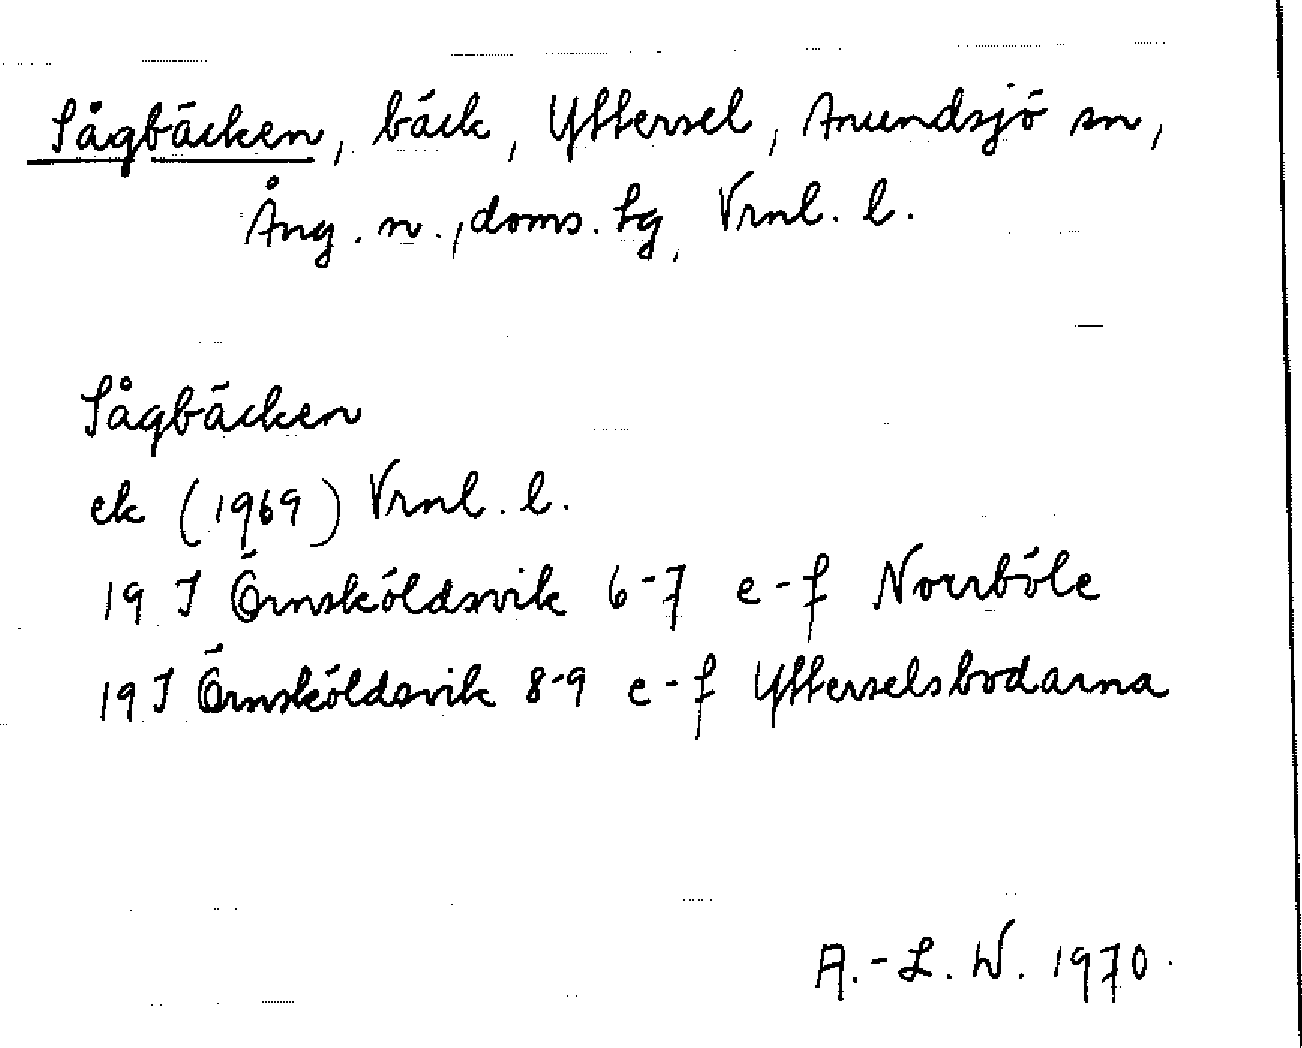 Sågbäcken, bäck, Yttersel, Anundsjö sn,
Ång. n., doms. lg, Vrnl. l.
Sågbäcken
ek (1969) Vrnl. l.
19 I Örnsköldsvik 6-7 e-f Norrböle
19 I Örnsköldsvik 8-9 e-f Ytterselsbodarna
A.-L. W. 1970.